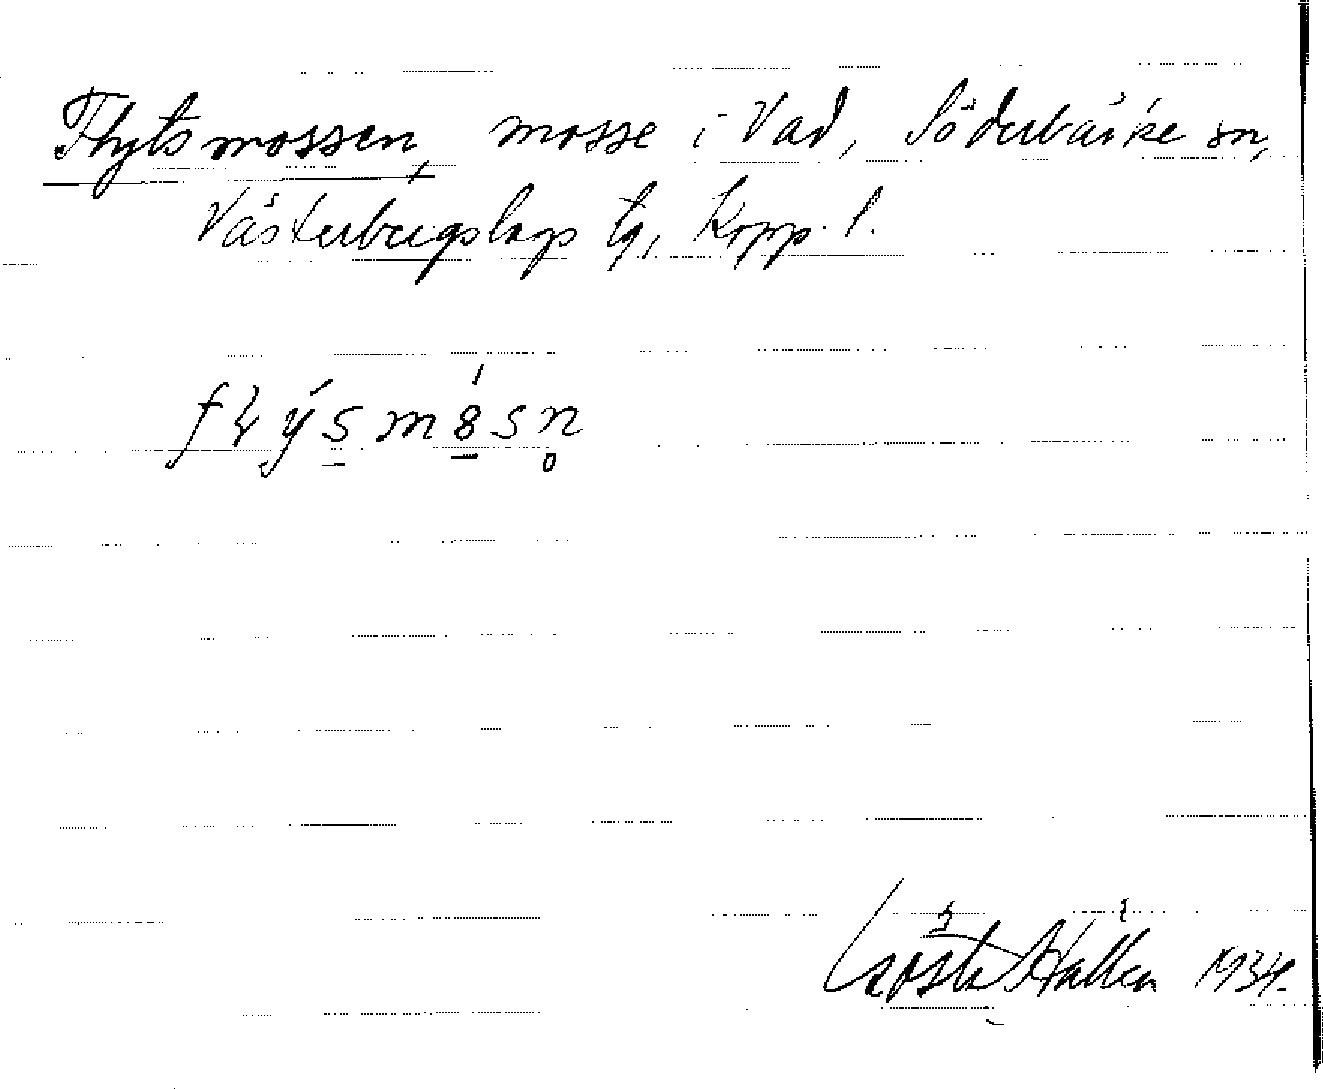 Flytsmossen, mosse i Vad, Söderbärke sn,
Västerbergslags tg, Kopp. l.
Gösta Hallén 1934.